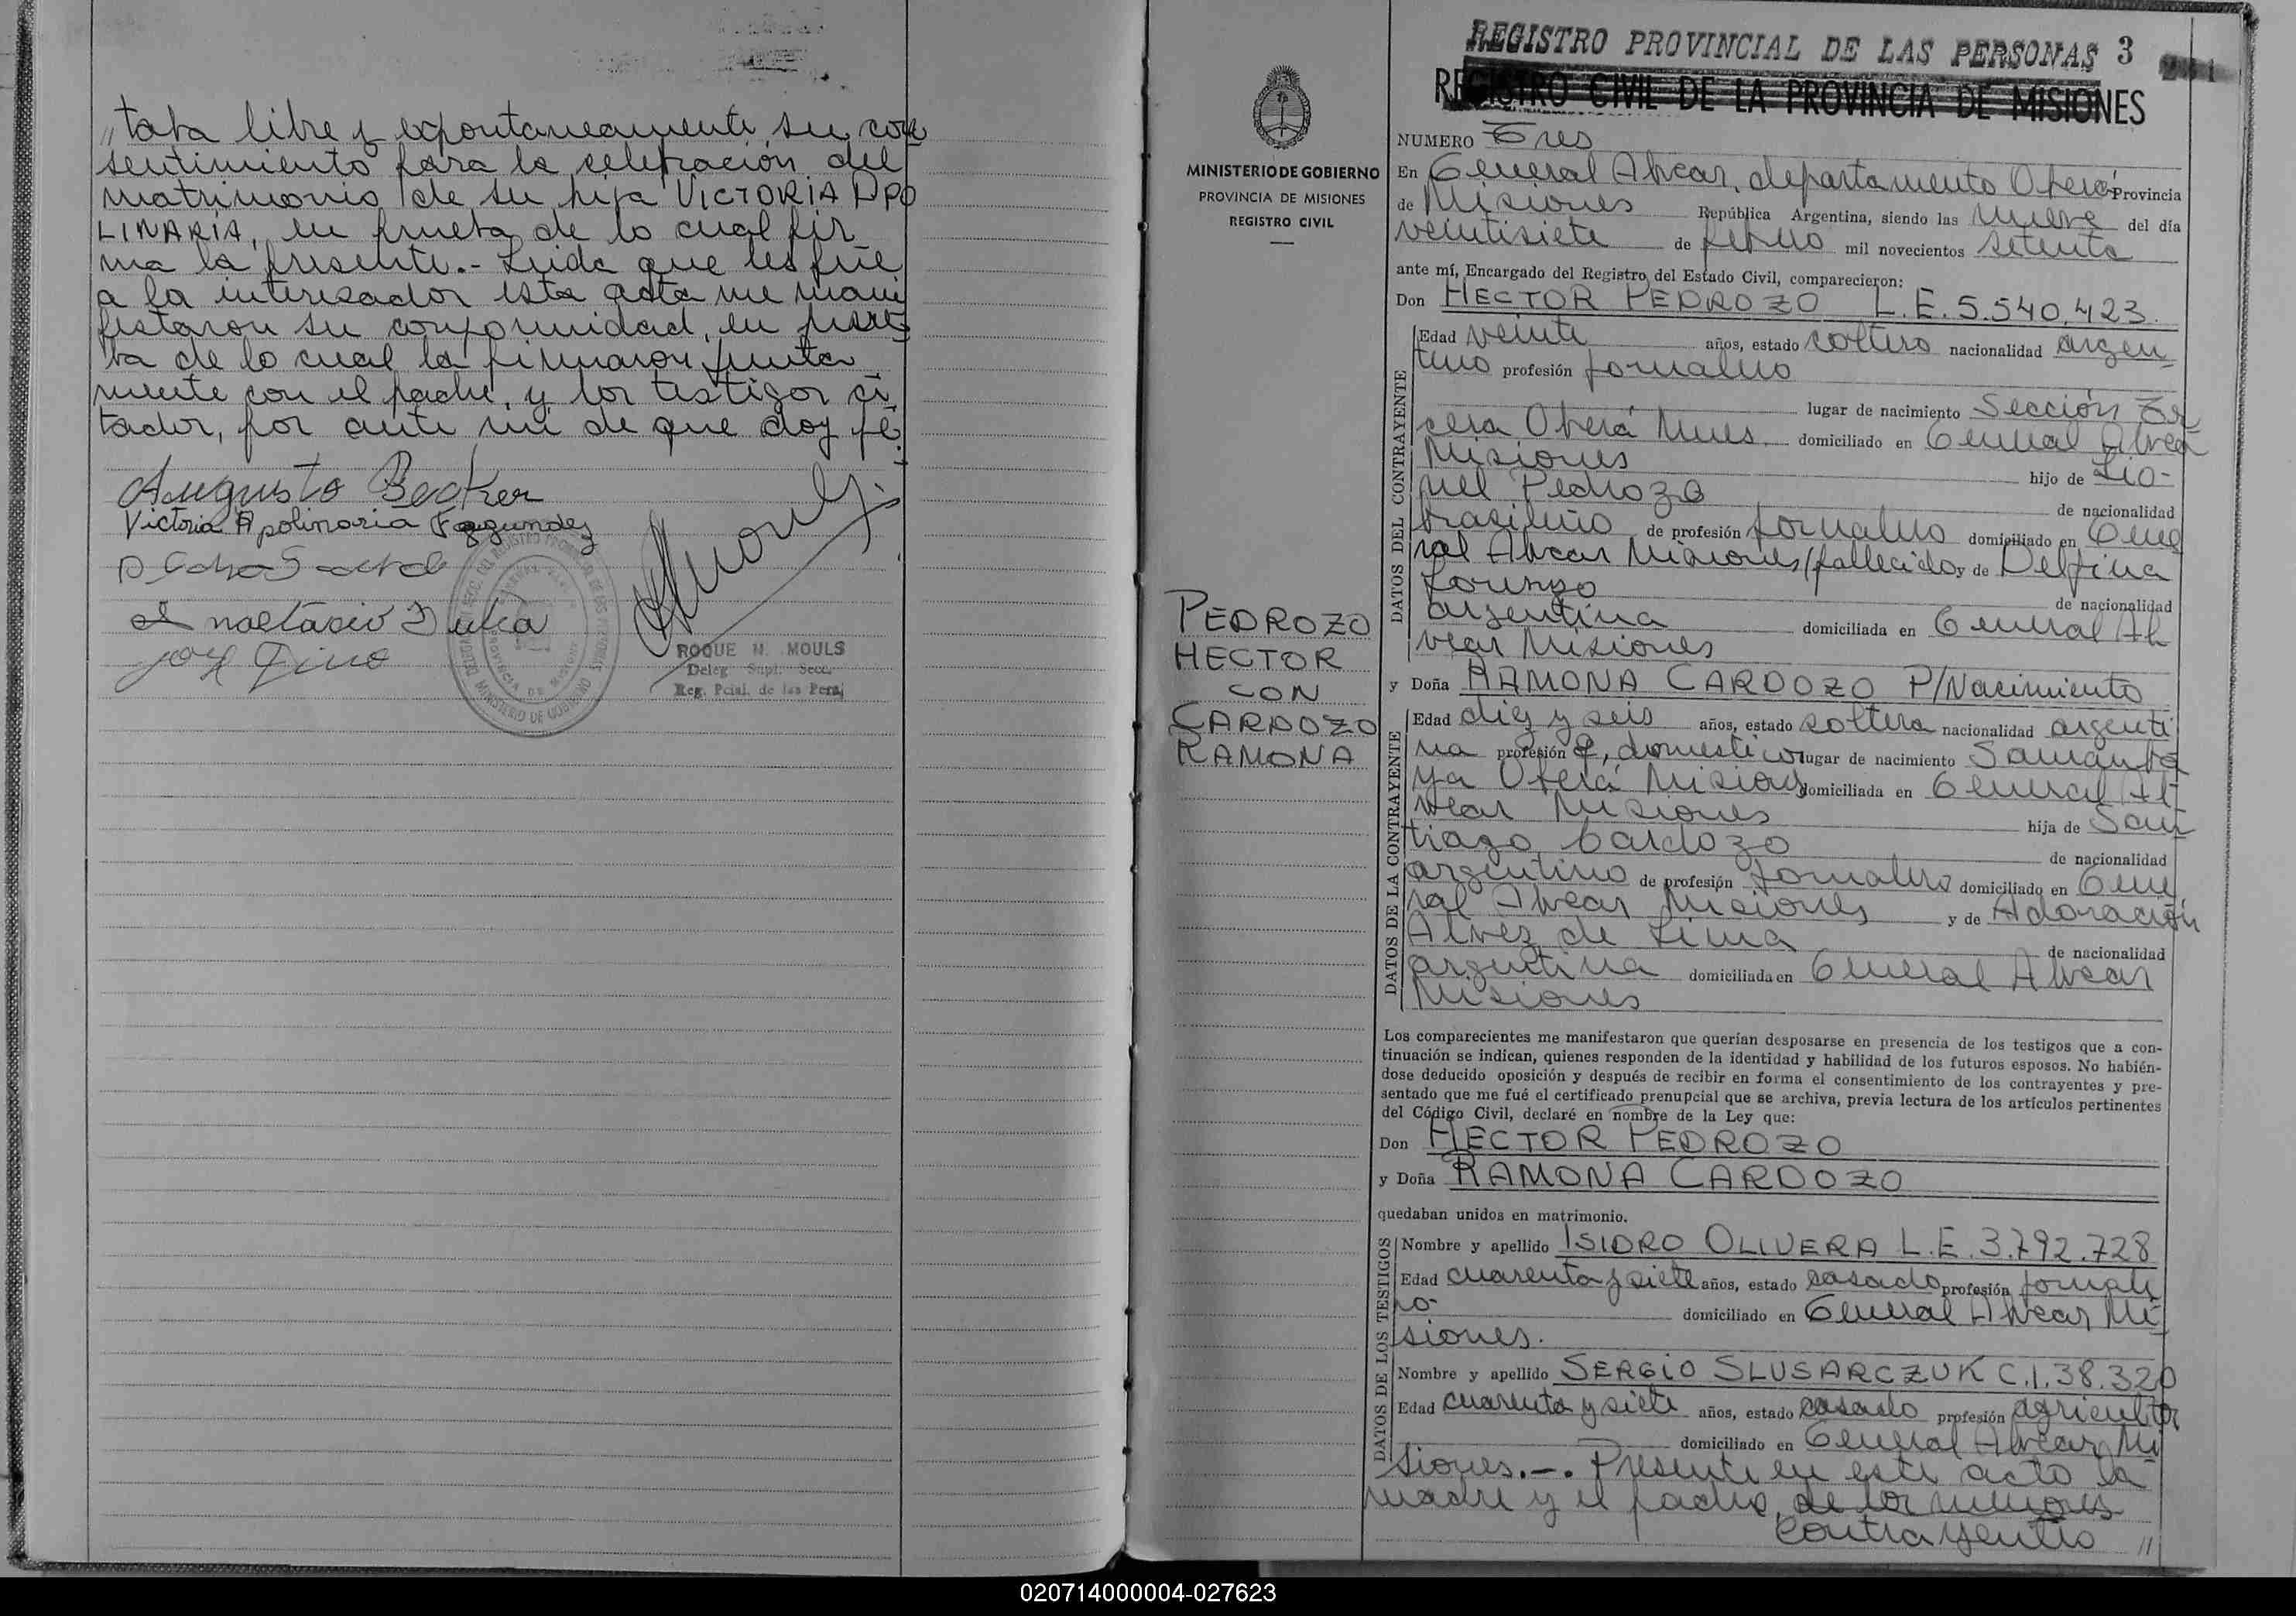 // tata libre y expontaneamente su con
sentimiento para la celebración del
matrimonio de su hija VICTORIA APO
LINARIA, en prueba de lo cual fir
ma la presente.- Leida que les fue
a la interesador esta acta me mani
festaron su conformidad, en prue
ba de lo cual la firmaron junta
mente con el padre, y los testigos ci
tador, por ante mi de que doy fé.
Augusto Becker
Victoria Apolinaria Fagundez
Anastacio Dutra
ROQUE N. MOULS
Deleg. Supl. Secc.
Reg. Pcial. de las Pers.
REGISTRO PROVINCIAL DE LAS PERSONAS 3
REGISTRO CIVIL DE LA PROVINCIA DE MISIONES
MINISTERIO DE GOBIERNO
PROVINCIA DE MISIONES
REGISTRO CIVIL
PEDROZO
HECTOR
CON
CARDOZO
RAMONA
NUMERO Tres
En General Alvear, departamento Oberá Provincia
de Misiones República Argentina, siendo las nueve del día
veintisiete de febrero mil novecientos setenta
ante mí, Encargado del Registro del Estado Civil, comparecieron:
Don HECTOR PEDROZO L.E. 5.540.423.
DATOS DEL CONTRAYENTE
Edad veinte años, estado soltero nacionalidad argen-
tino profesión jornalero
lugar de nacimiento Sección Ter
cera Oberá Mnes. domiciliado en General Alvear
Misiones hijo de Lio-
nel Pedrozo de nacionalidad
brasileño de profesión jornalero domiciliado en Gene
ral Alvear Misiones (fallecido) y de Delfina
Lorenzo de nacionalidad
argentina domiciliada en General Al
vear Misiones
y Doña RAMONA CARDOZO P/Nacimiento
DATOS DE LA CONTRAYENTE
Edad diez y seis años, estado soltera nacionalidad argenti
na profesión q. domestico lugar de nacimiento Samamba
ya Oberá Misiones domiciliada en General Al
vear Misiones hija de San
tiago Cardozo de nacionalidad
argentino de profesión jornalero domiciliado en Gene
ral Alvear Misiones y de Adoración
Alvez de Lima de nacionalidad
argentina domiciliada en General Alvear
Misiones
Los comparecientes me manifestaron que querían desposarse en presencia de los testigos que a con-
tinuación se indican, quienes responden de la identidad y habilidad de los futuros esposos. No habién-
dose deducido oposición y después de recibir en forma el consentimiento de los contrayentes y pre-
sentado que me fué el certificado prenupcial que se archiva, previa lectura de los artículos pertinentes
del Código Civil, declaré en nombre de la Ley que:
Don HECTOR PEDROZO
y Doña RAMONA CARDOZO
quedaban unidos en matrimonio.
DATOS DE LOS TESTIGOS
Nombre y apellido ISIDRO OLIVERA L.E. 3.792.728
Edad cuarenta y siete años, estado casado profesión jornale
ro- domiciliado en General Alvear Mi
siones.
Nombre y apellido SERGIO SLUSARCZUK C.I. 38.320
Edad cuarenta y siete años, estado casado profesión agricultor
domiciliado en General Alvear Mi
siones.-. Presente en este acto la
madre y el padre, de los menores
contrayentes //
020714000004-027623